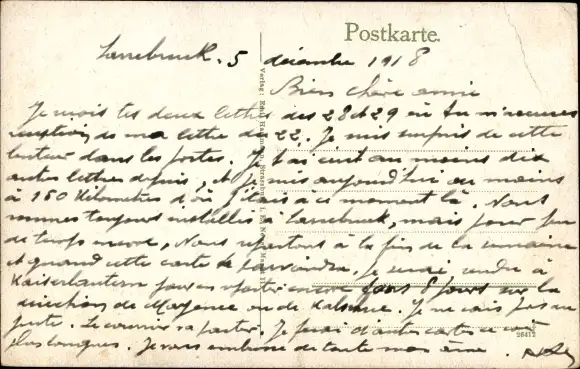 Postkarte.
Sarrebruck. 5 décembre 1918
Bien chère amie
Je reçois tes deux lettres des 28 et 29 où tu m'accuses
réception de ma lettre des 22. Je suis surpris de cette
lenteur dans les postes. Je t'ai écrit au moins dix
autres lettres depuis, et je suis aujourd'hui au moins
à 150 Kilomètres d'où j'étais à ce moment là. Nous
sommes toujours installés à Sarrebruck, mais pour peu
de temps encore, Nous repartons à la fin de la semaine
et quand cette carte te parviendra, je serai rendu à
Kaiserlautern pour en repartir encore 8 jours sur la
direction de Mayence ou de . Je ne sais pas au
juste. Le courrier va partir. Je ferai d'autres cartes
plus longues. Je vous embrasse de toute mon âme.
Verlag:
26412